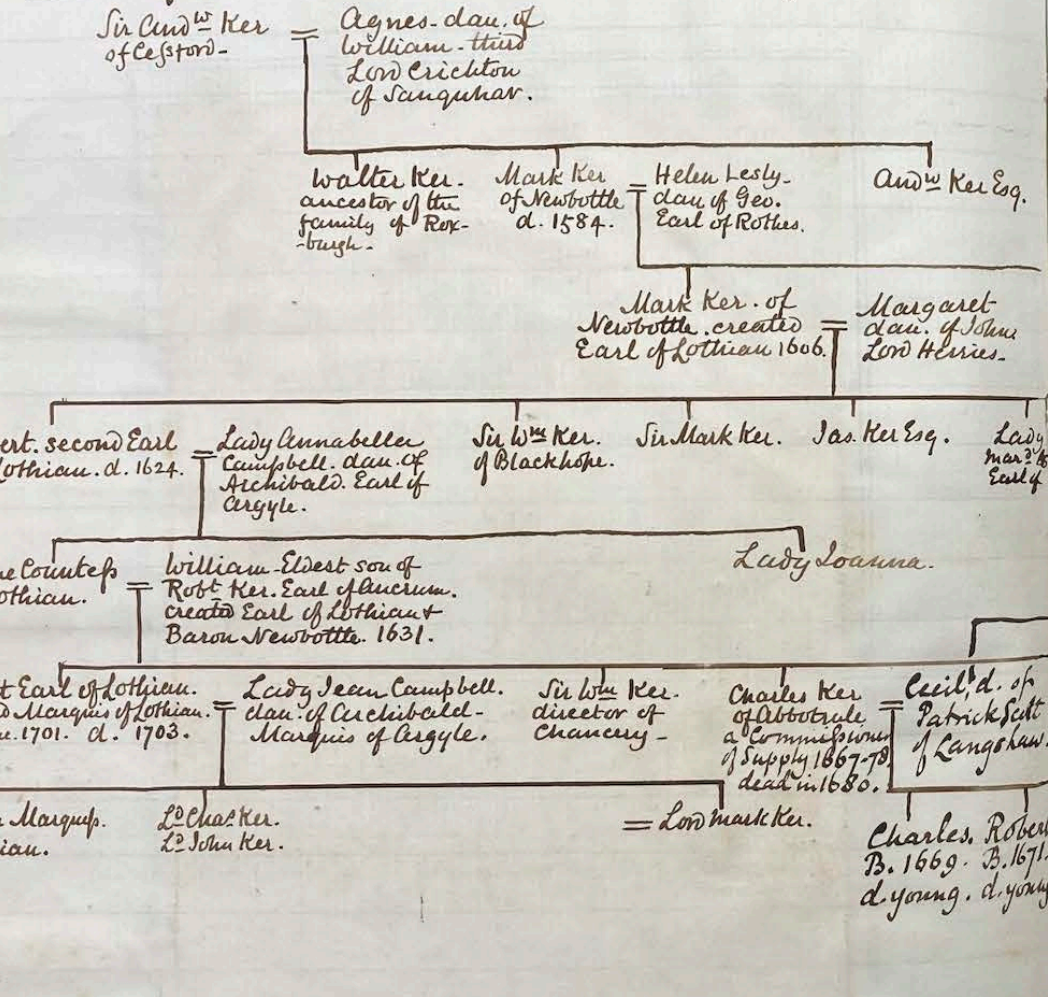 Sir Andw Ker
of Cessford-
Agnes-dau. of
William-third
Lord Crichton
of Sanquhar.
Walter Ker.
ancestor of the
family of Rox-
-burgh-
Mark Ker
of Newbottle
d. 1584.
Helen Lesly-
dau of Geo.
Earl of Rothes.
Andw Ker Esq.
Mark Ker. of
Newbottle. created
Earl of Lothian 1606.
Margaret
dau. of John
Lord Herries-
ert. second Earl
Lothian. d. 1624.
Lady Annabella
Campbell. dau. of
Archibald. Earl of
Argyle.
Sir Wm Ker.
of Blackhope.
Sir Mark Ker.
Jas. Ker Esq.
Lady
mard
Earl of
ne Countess
othian.
William-Eldest son of
Robt Ker. Earl of Ancrum.
created Earl of Lothian &
Baron Newbottle. 1631.
Lady Joanna.
t Earl of Lothian.
d Marquis of Lothian.
1701. d. 1703.
Lady Jean Campbell.
dau. of Archibald-
Marquis of Argyle.
Sir Wm Ker.
director of
Chancery-
Charles Ker
of Abbotrule
a Commissioner
of Supply 1667-78
dead in 1680.
Cecil, d. of
Patrick Scott
of Langshaw.
Marquis.
ian.
Ld Chas Ker.
Ld John Ker.
= Lord Mark Ker.
Charles.
B. 1669.
d. young.
Robert
B. 1671.
d. young